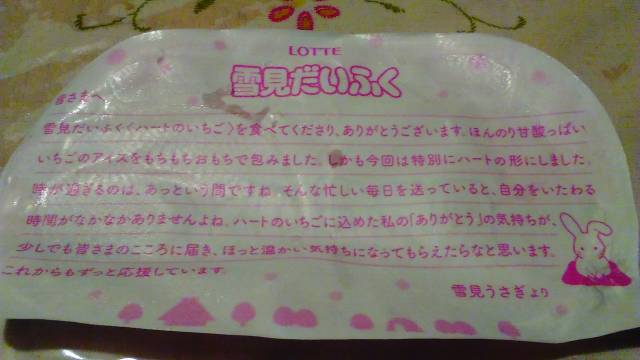 LOTTE
雪見だいふく
皆さまへ
雪見だいふく〈ハートのいちご〉を食べてくださり、ありがとうございます。ほんのり甘酸っぱい
いちごのアイスをもちもちおもちで包みました。しかも今回は特別にハートの形にしました。
時が過ぎるのは、あっという間ですね。そんな忙しい毎日を送っていると、自分をいたわる
時間がなかなかありませんよね。ハートのいちごに込めた私の「ありがとう」の気持ちが、
少しでも皆さまのこころに届き、ほっと温かい気持ちになってもらえたらなと思います。
これからもずっと応援しています。
雪見うさぎより